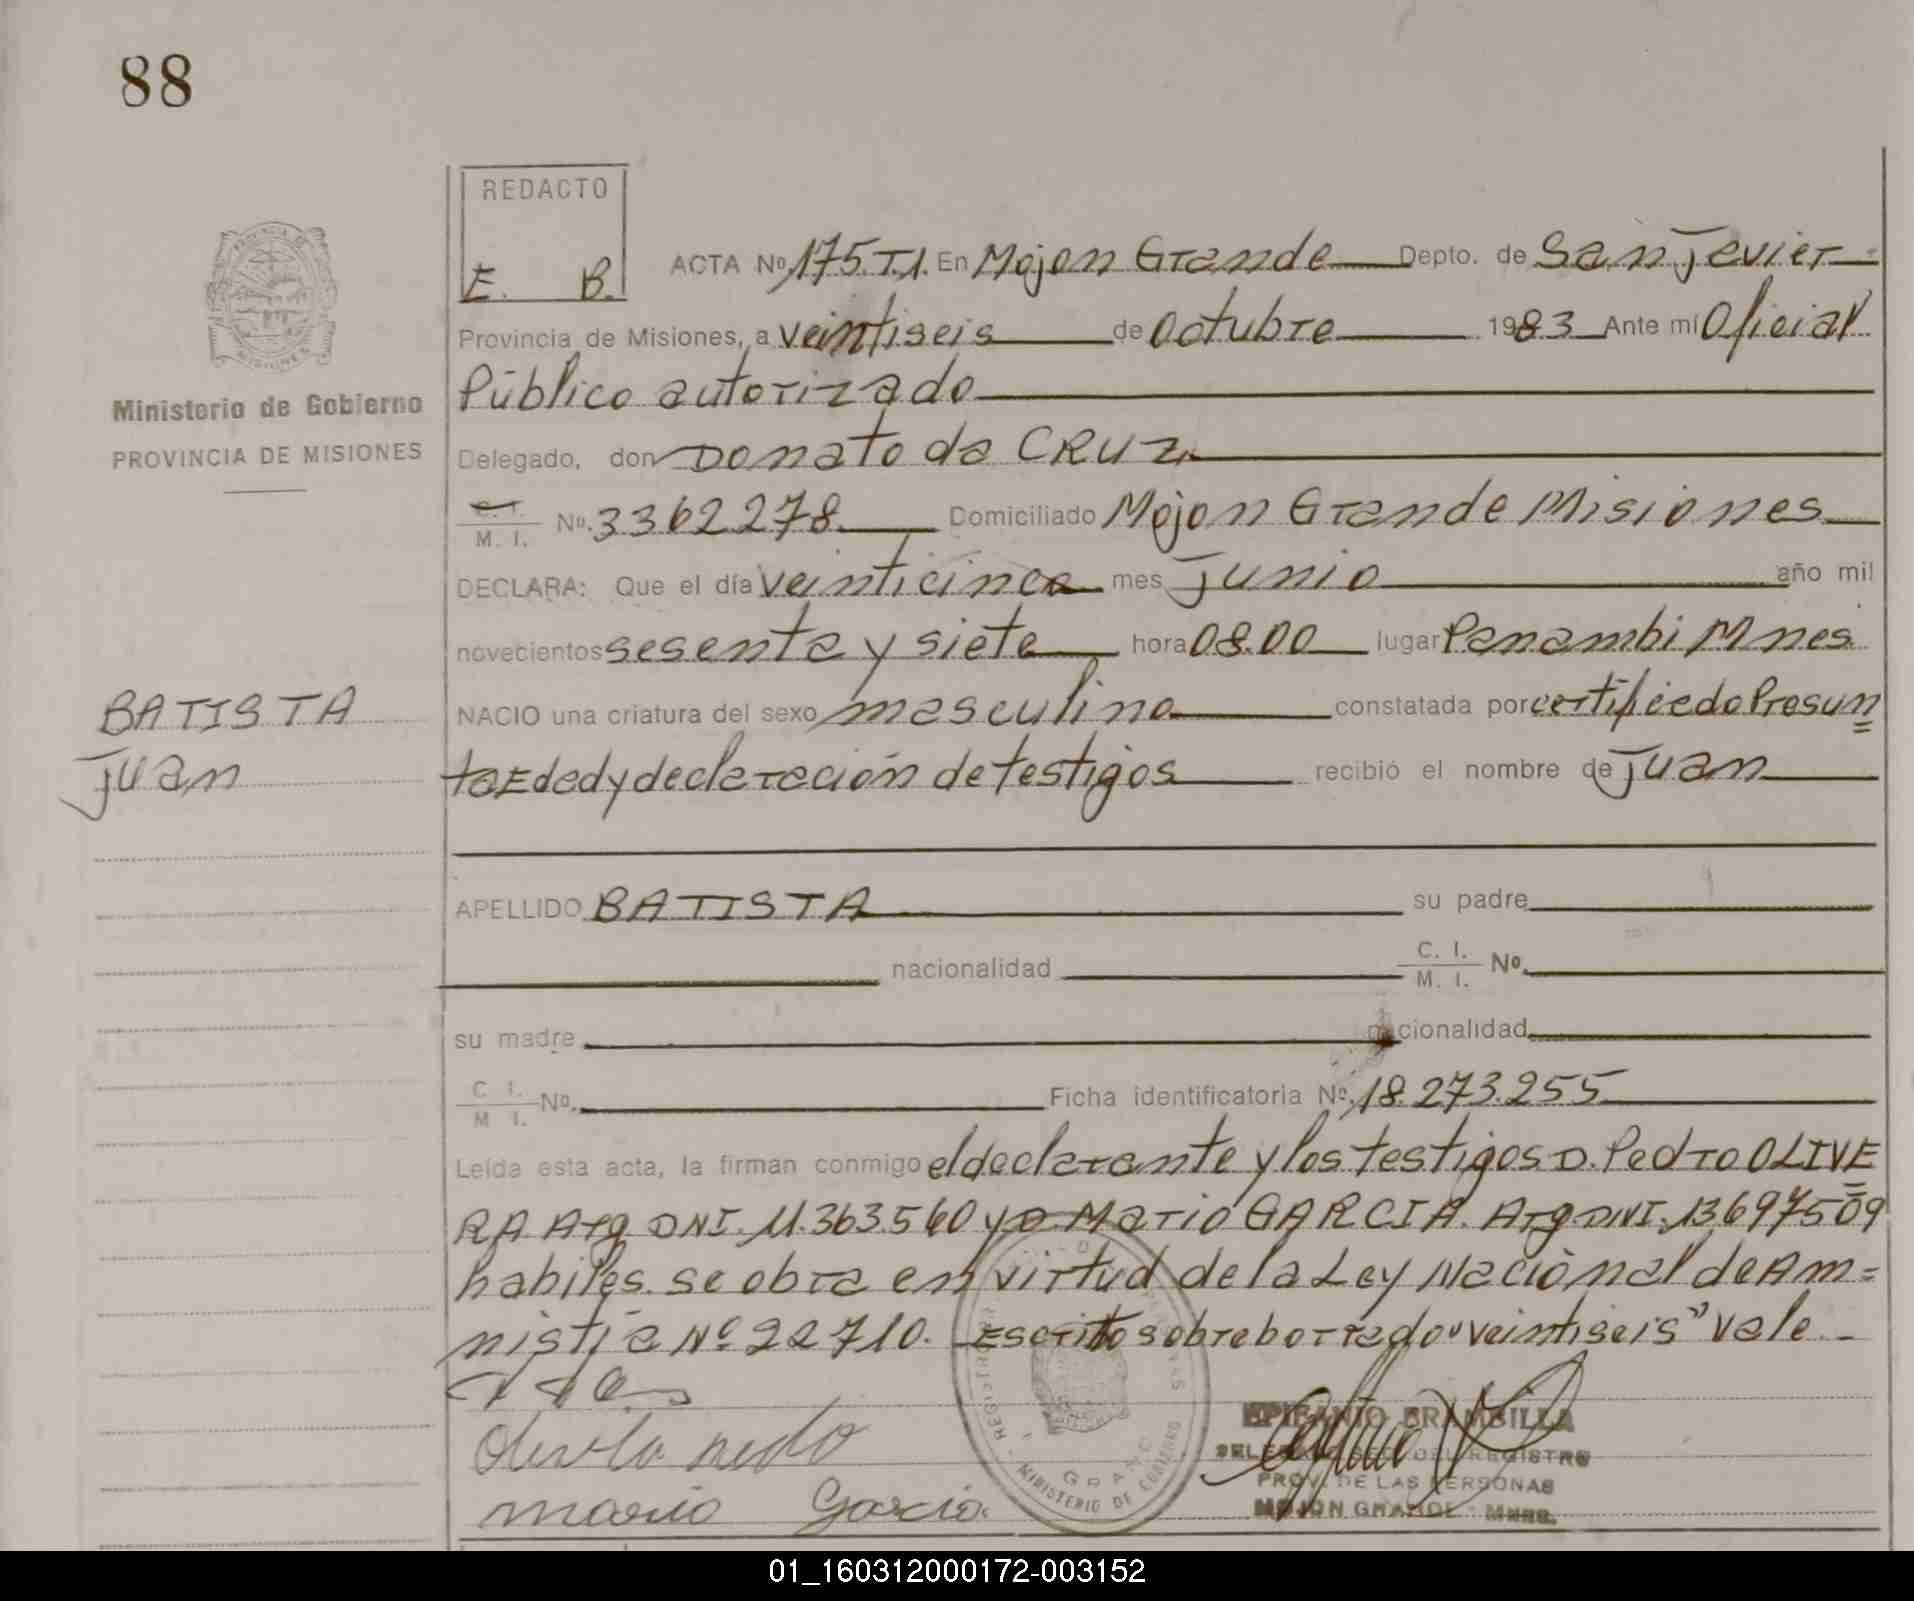 88
REDACTO
E. B.
ACTA Nº 175.T.1. En Mojon Grande Depto. de San Javier
Provincia de Misiones, a veintiseis de Octubre 1983 Ante mí Oficial
Público autorizado
Ministerio de Gobierno
PROVINCIA DE MISIONES
Delegado, don Donato da CRUZ
C. I. / M. I. Nº. 3362278 Domiciliado Mojon Grande Misiones
DECLARA: Que el día veinticinco mes junio año mil
novecientos sesenta y siete hora 08.00 lugar Panambi Mnes.
BATISTA
Juan
NACIO una criatura del sexo masculino constatada por certificado Presun
ta Edad y declaración de testigos recibió el nombre de Juan
APELLIDO BATISTA su padre
nacionalidad C. I. / M. I. Nº.
su madre nacionalidad
C. I. / M. I. Nº. Ficha identificatoria Nº. 18.273.255
Leída esta acta, la firman conmigo el declarante y los testigos D. Pedro OLIVE
RA Arg DNI. 11.363.560 y D. Mario GARCIA. Arg DNI. 13697509
habiles. se obra en virtud de la Ley Nacional de Am=
nistia Nº 22710. Escrito sobre borrado "veintiseis" vale
mario Garcia.
EPIFANIO BRAMBILLA
REGISTRO
PROV. DE LAS PERSONAS
MOJON GRANDE - MNES.
MINISTERIO DE GOBIERNO
01_160312000172-003152